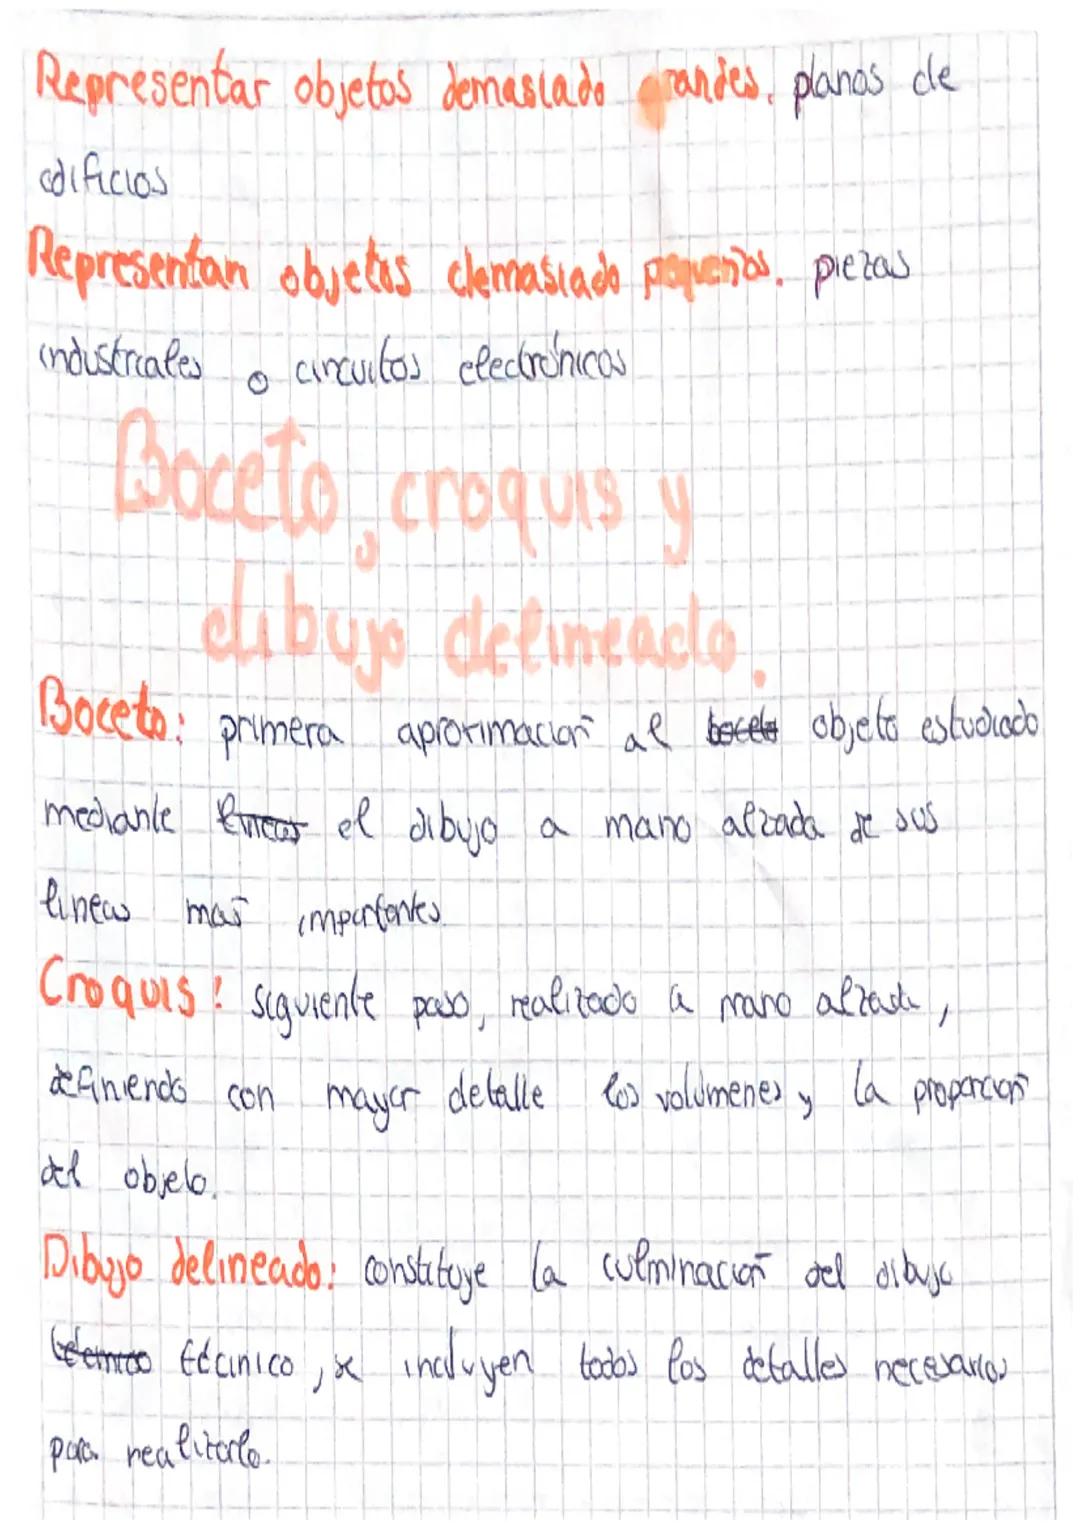 Representar objetos demasiado grandes. planos de
edificios
Representan objetos demasiado pequeños. piezas
industriales o circuitos electrónicos
Boceto, croquis y
dibujo delineado.
Boceto: primera aproximación al boceto objeto estudiado
mediante lineas el dibujo a mano alzada de sus
lineas mas importantes.
Croquis: siguiente paso, realizado a mano alzada,
definiendo con mayor detalle los volúmenes y la proporción
del objeto.
Dibujo delineado: constituye la culminación del dibujo
técnico, se incluyen todos los detalles necesarios
para realizarlo.